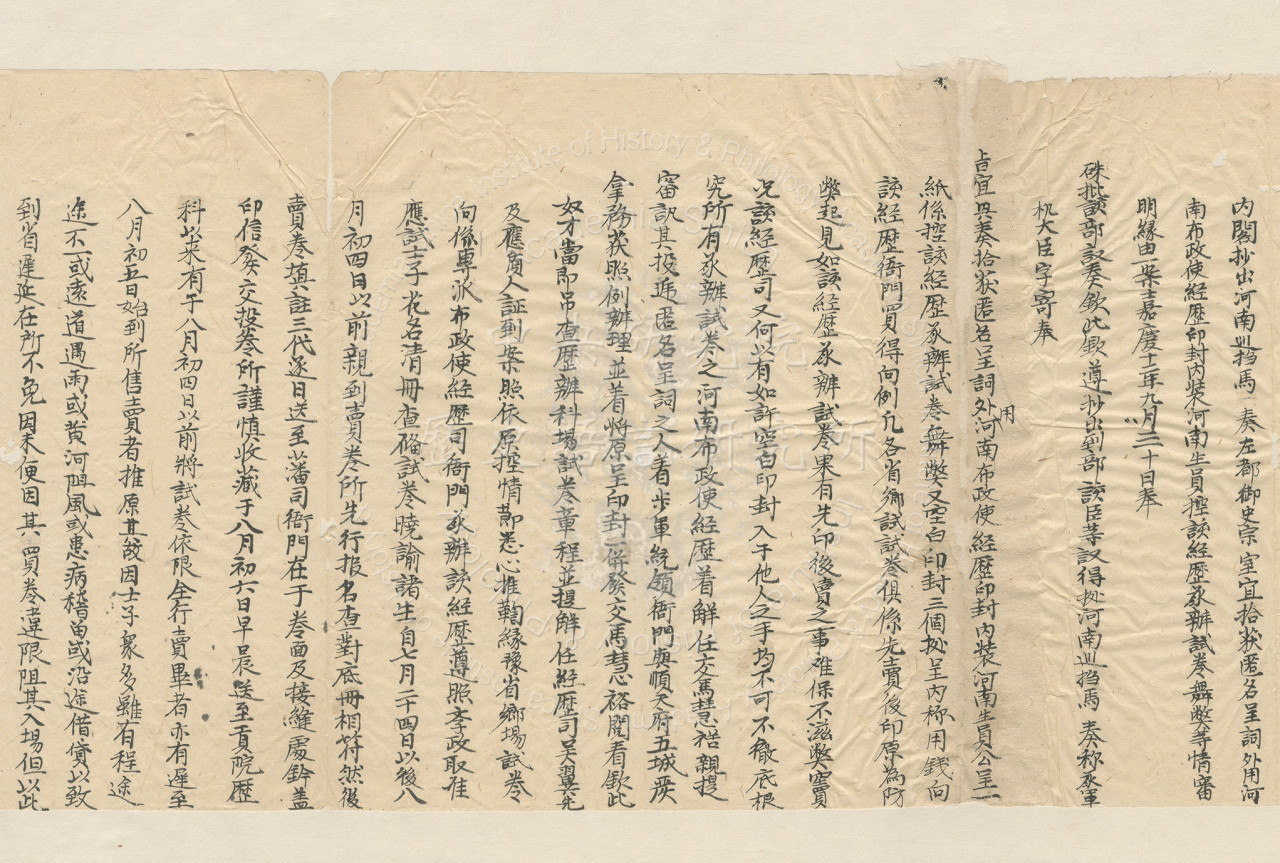 内閣抄出河南巡撫馬 奏左都御史宗室宜拾获匿名呈詞外用河
南布政使經歷印封内裝河南生員控該經歷承辦試卷舞弊等情審
明緣由一案嘉慶十二年九月二十日奉
硃批該部議奏欽此欽遵抄出到部 該臣等議得拠河南巡撫馬 奏称承軍
机大臣字寄奉
旨宜興奏拾获匿名呈詞外用河南布政使經歷印封内裝河南生員公呈一
紙係控該經歷承辦試卷舞弊又空白印封三個拠呈内称用錢向
該經歷衙門買得向例凡各省鄉試試卷俱係先賣後印原為防
弊起見如該經歷承辦試卷果有先印後賣之事难保不滋弊竇
况該經歷司又何以有如許空白印封入于他人之手均不可不徹底根
究所有承辦試卷之河南布政使經歷着解任交馬慧裕親提
審訊其投遞匿名呈詞之人着步軍統領衙門與順天府五城嚴
拿務获照例辦理並着將原呈印封一併發交馬慧裕閱看欽此
奴才當即吊查歷辦科場試卷章程並提解任經歷司吳翼先
及應質人証到案照依原控情節悉心推鞫緣豫省鄉場試卷
向係專派布政使經歷司衙門承辦該經歷遵照李政取准
應試士子花名清冊查備試卷曉諭諸生自七月二十四日以後八
月初四日以前親到賣卷所先行报名查對底冊相符然後
賣卷填註三代逐日送至藩司衙門在于卷面及接縫處鈐盖
印信發交投卷所謹慎收藏于八月初六日早晨送至貢院歷
科以来有于八月初四日以前將試卷依限全行賣畢者亦有遲至
八月初五日始到所售賣者推原其故因士子衆多雖有程途
途不一或遠道遇雨或黄河阻風或患病稽留或沿途借貸以致
到省遲延在所不免因未便因其買卷違限阻其入場但以此